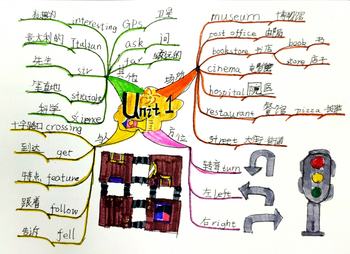 Unit 1
其他
有趣的 interesting
意大利的 Italian
先生 sir
笔直地 straight
科学 science
GPS 卫星
ask 问
far 较远的
场所
museum 博物馆
post office 邮局
bookstore 书店
book 书
store 店子
cinema 电影院
hospital 医院
restaurant 餐馆
pizza 披萨
street 大街
方位
转弯 turn
左 left
右 right
十字路口 crossing
到达 get
特点 feature
跟着 follow
fell